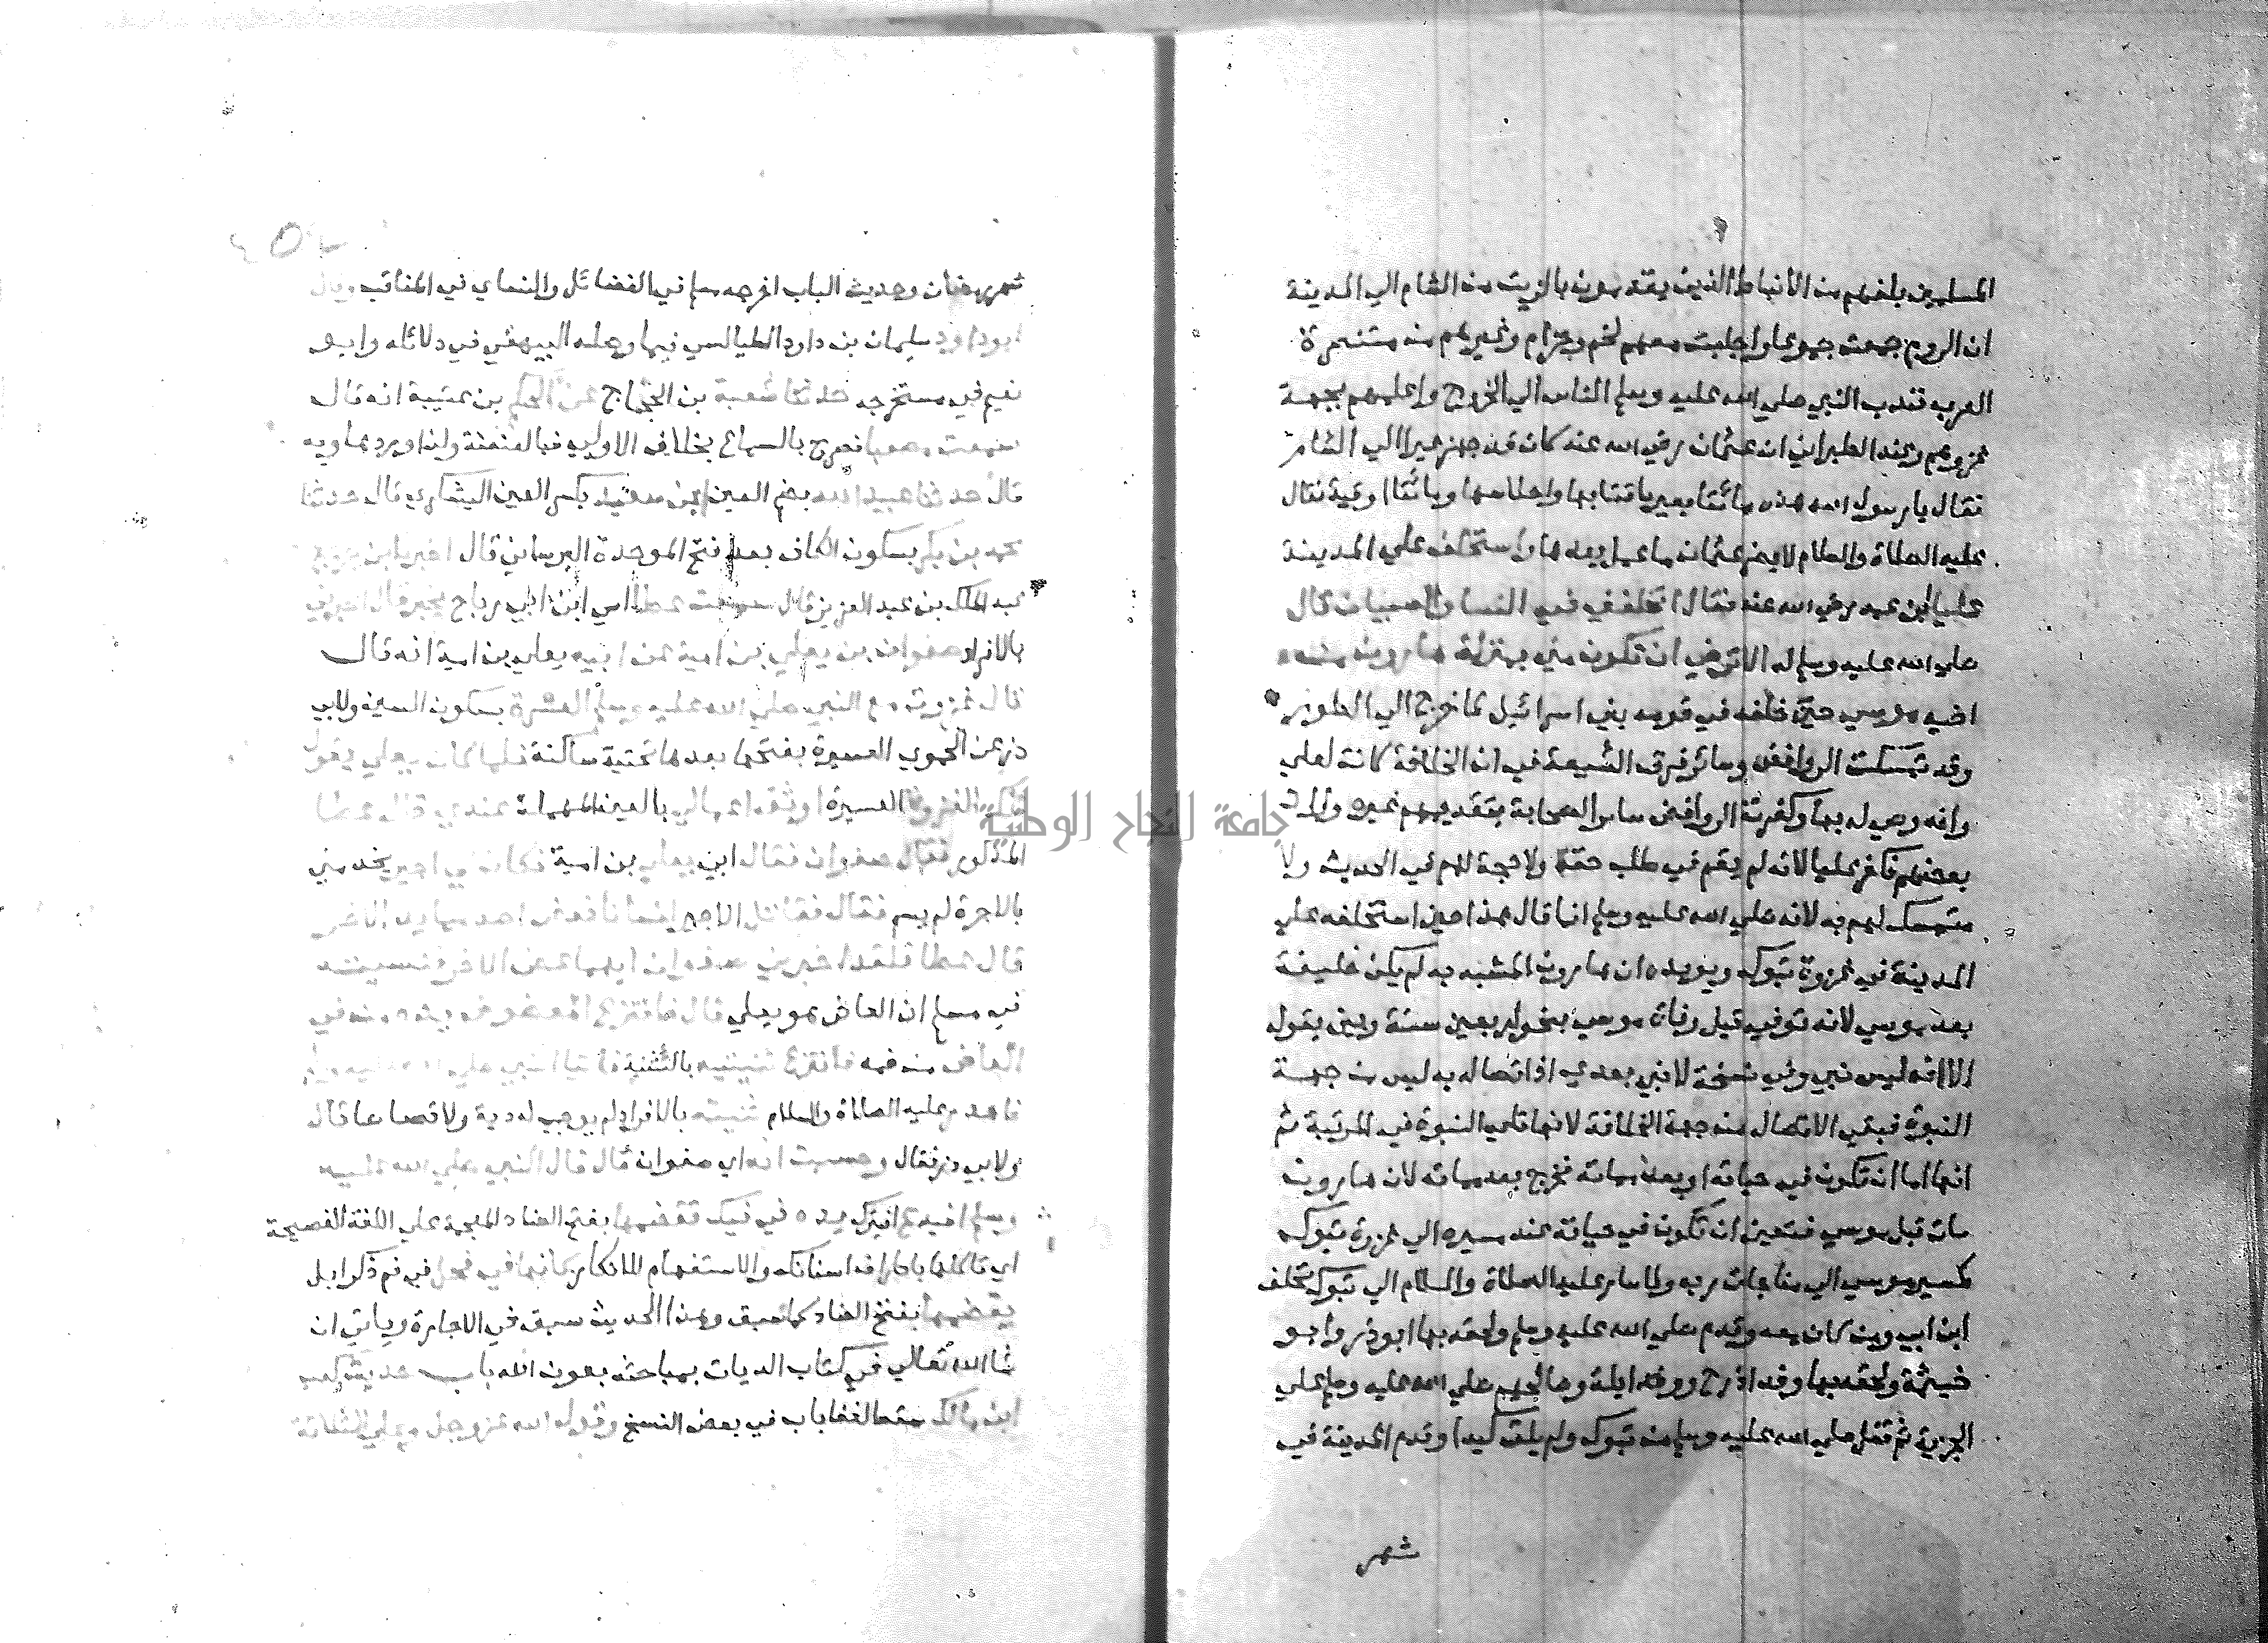 المسلمين بلغهم من الأنباط الذين يقدمون بالزيت من الشام الي المدينة
ان الروم جمعت جموعا واجلبت معهم لخم وجزام وغيرهم من متنصرة
العرب فندب النبي صلي الله عليه وسلم الناس الي الخروج واعلمهم بجهة
غزوهم وعند الطبراني ان عثمان رضي الله عنه كان قد جهز عيرا الي الشام
فقال يا رسول الله هذه مائتا بعير باقتابها واحلاسها ومائتا اوقية فقال
عليه الصلاة والسلام لا يضر عثمان ما عمل بعدها واستخلف علي المدينة
عليا ابن عمه رضي الله عنه فقال اتخلفني في النسا والصبيان قال
صلي الله عليه وسلم له الا ترضي ان تكون مني بمنزلة هارون من
اخيه موسي حين خلفه في قومه بني اسرائيل لما خرج الي الطور
وقد تمسكت الروافض وسائر فرق الشيعة في ان الخلافة كانت لعلي
وانه وصي له بها وكفرت الروافض سائر الصحابة بتقديمهم غيره وزاد
بعضهم فكفر عليا لانه لم يقم في طلب حقه ولا حجة لهم في الحديث ولا
متمسك لهم به لانه صلي الله عليه وسلم انما قال هذا حين استخلفه علي
المدينة في غزوة تبوك ويويده ان هارون المشبه به لم يكن خليفة
بعد موسي لانه توفي قبل وفاة موسي بنحو اربعين سنة وبين بقوله
الا انه ليس نبي وفي نسخة لا نبي بعدي ان اتصاله به ليس من جهة
النبوة فبقي الاتصال من جهة الخلافة لانها تلي النبوة في المرتبة ثم
انها اما ان تكون في حياته او بعد مماته فخرج بعد مماته لان هارون
مات قبل موسي فتعين ان تكون في حياته عند مسيره الي غزوة تبوك
كمسير موسي الي مناجات ربه ولما سار عليه الصلاة والسلام الي تبوك تخلف
ابن ابي ومن كان معه وقدم صلي الله عليه وسلم ولحقه بها ابو ذر وابو
خيثمة ولحقه بها وفد اذرح ووفد ايلة وصالحهم صلي الله عليه وسلم علي
الجزية ثم قفل صلي الله عليه وسلم من تبوك ولم يلق كيدا وقدم المدينة في
شهر
شهر رمضان وحديث الباب اخرجه مسلم في الفضائل والنساي في المناقب وقال
ابو داود سليمان بن داود الطيالسي فيما وصله البيهقي في دلائله وابو
نعيم في مستخرجه حدثنا شعبة بن الحجاج عن الحكم بن عتيبة انه قال
سمعت مصعبا فصرح بالسماع بخلاف الاولي فبالعنعنة ولذا اوردها وبه
قال حدثنا عبيد الله بضم العين ابن سعيد بكسر العين اليشكري قال حدثنا
محمد بن بكر بسكون الكاف بعد فتح الموحدة البرساني قال اخبرنا ابن جريج
عبد الملك بن عبد العزيز قال سمعت عطا اي ابن ابي رباح يخبر قال اخبرني
بالافراد صفوان بن يعلي بن امية عن ابيه يعلي بن امية انه قال
قال غزوت مع النبي صلي الله عليه وسلم العسرة بسكون السين ولابي
ذر عن الحموي العسيرة بفتحها بعدها تحتية ساكنة قال كان يعلي يقول
تلك الغزوة العسيرة اوثق اعمالي بالعين المهملة عندي قال عطا
المذكور فقال صفوان فقال ابي يعلي بن امية فكان لي اجير يخدمني
بالاجرة لم يسم فقال فقاتل الاجير انسانا فعض احدهما يد الاخر
قال عطا فلقد اخبرني صفوان ايهما عض الاخر فنسيته
في مسلم ان العاض هو يعلي قال فانتزع المعضوض يده من في
العاض من فمه فانتزع ثنيتيه بالتثنية فاتيا النبي صلي الله عليه وسلم
فاهدر عليه الصلاة والسلام ثنيته بالافراد لم يوجب له دية ولا قصاصا قال
ولابي ذر فقال وحسبت انه اي صفوان قال قال النبي صلي الله عليه
وسلم افيدع يده في فيك تقضمها بفتح الضاد المعجمة علي اللغة الفصيحة
اي تاكلها باطراف اسنانك والاستفهام للانكار كانها في في فحل في فم ذكر ابل
يقضمها بفتح الضاد كما سبق وهذا الحديث سبق في الاجارة وياتي ان
شا الله تعالي في كتاب الديات بمباحثه بعون الله باب حديث كعب
ابن مالك سقط لفظ باب في بعض النسخ وقول الله عز وجل وعلي الثلاثة
جامعة النجاح الوطنية